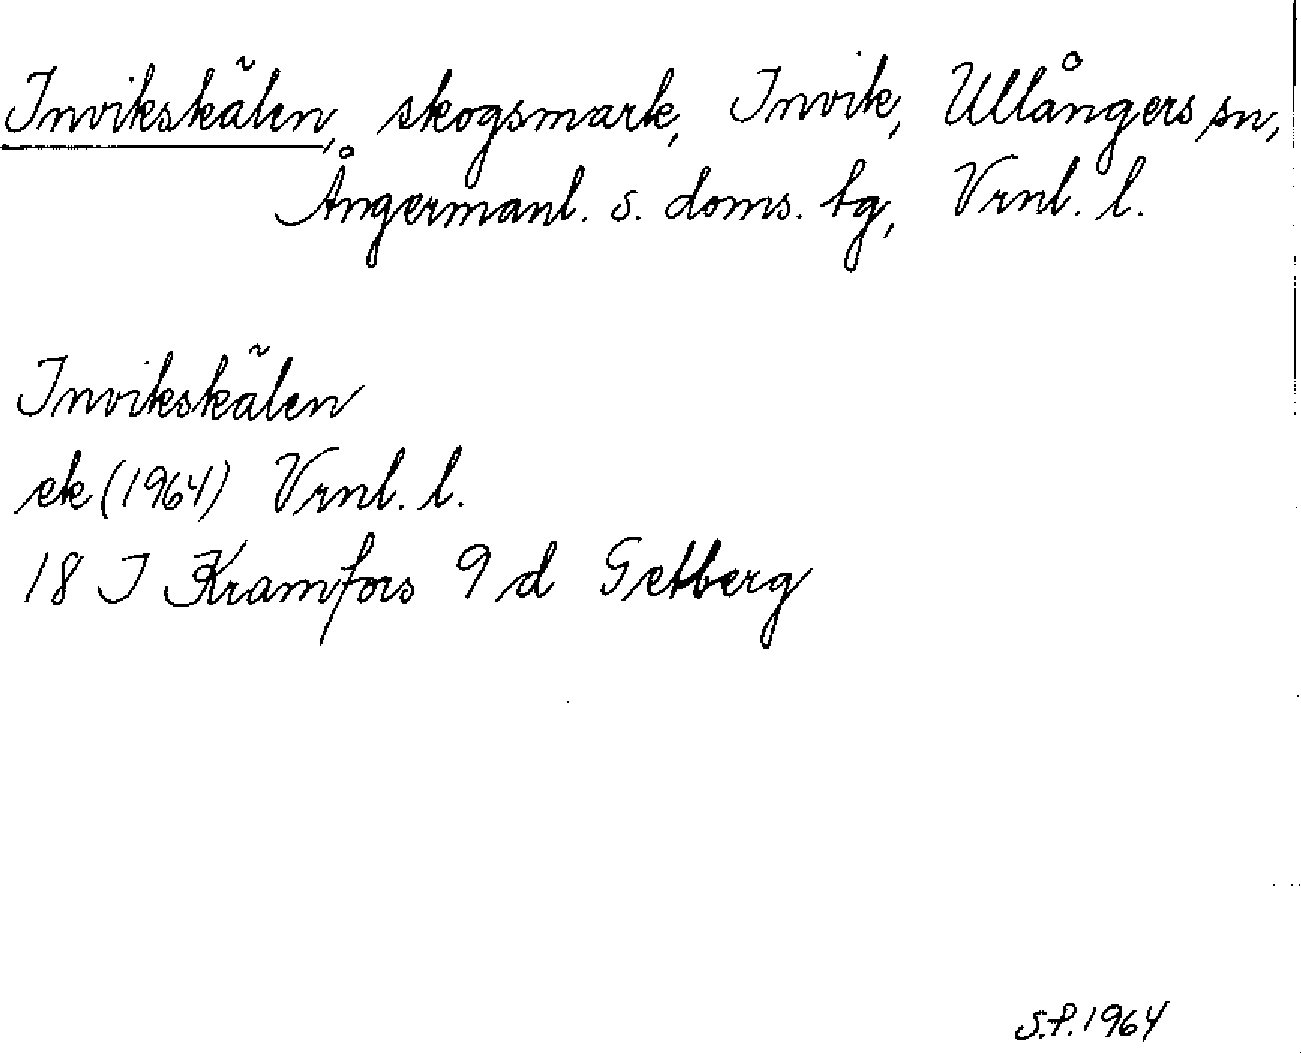 Invikskälen, skogsmark, Invik, Ullångers sn,
Ångermanl. s. doms. tg, Vrnl. l.
Invikskälen
ek (1964) Vrnl. l.
18 I Kramfors 9 d Getberg
S.P. 1964